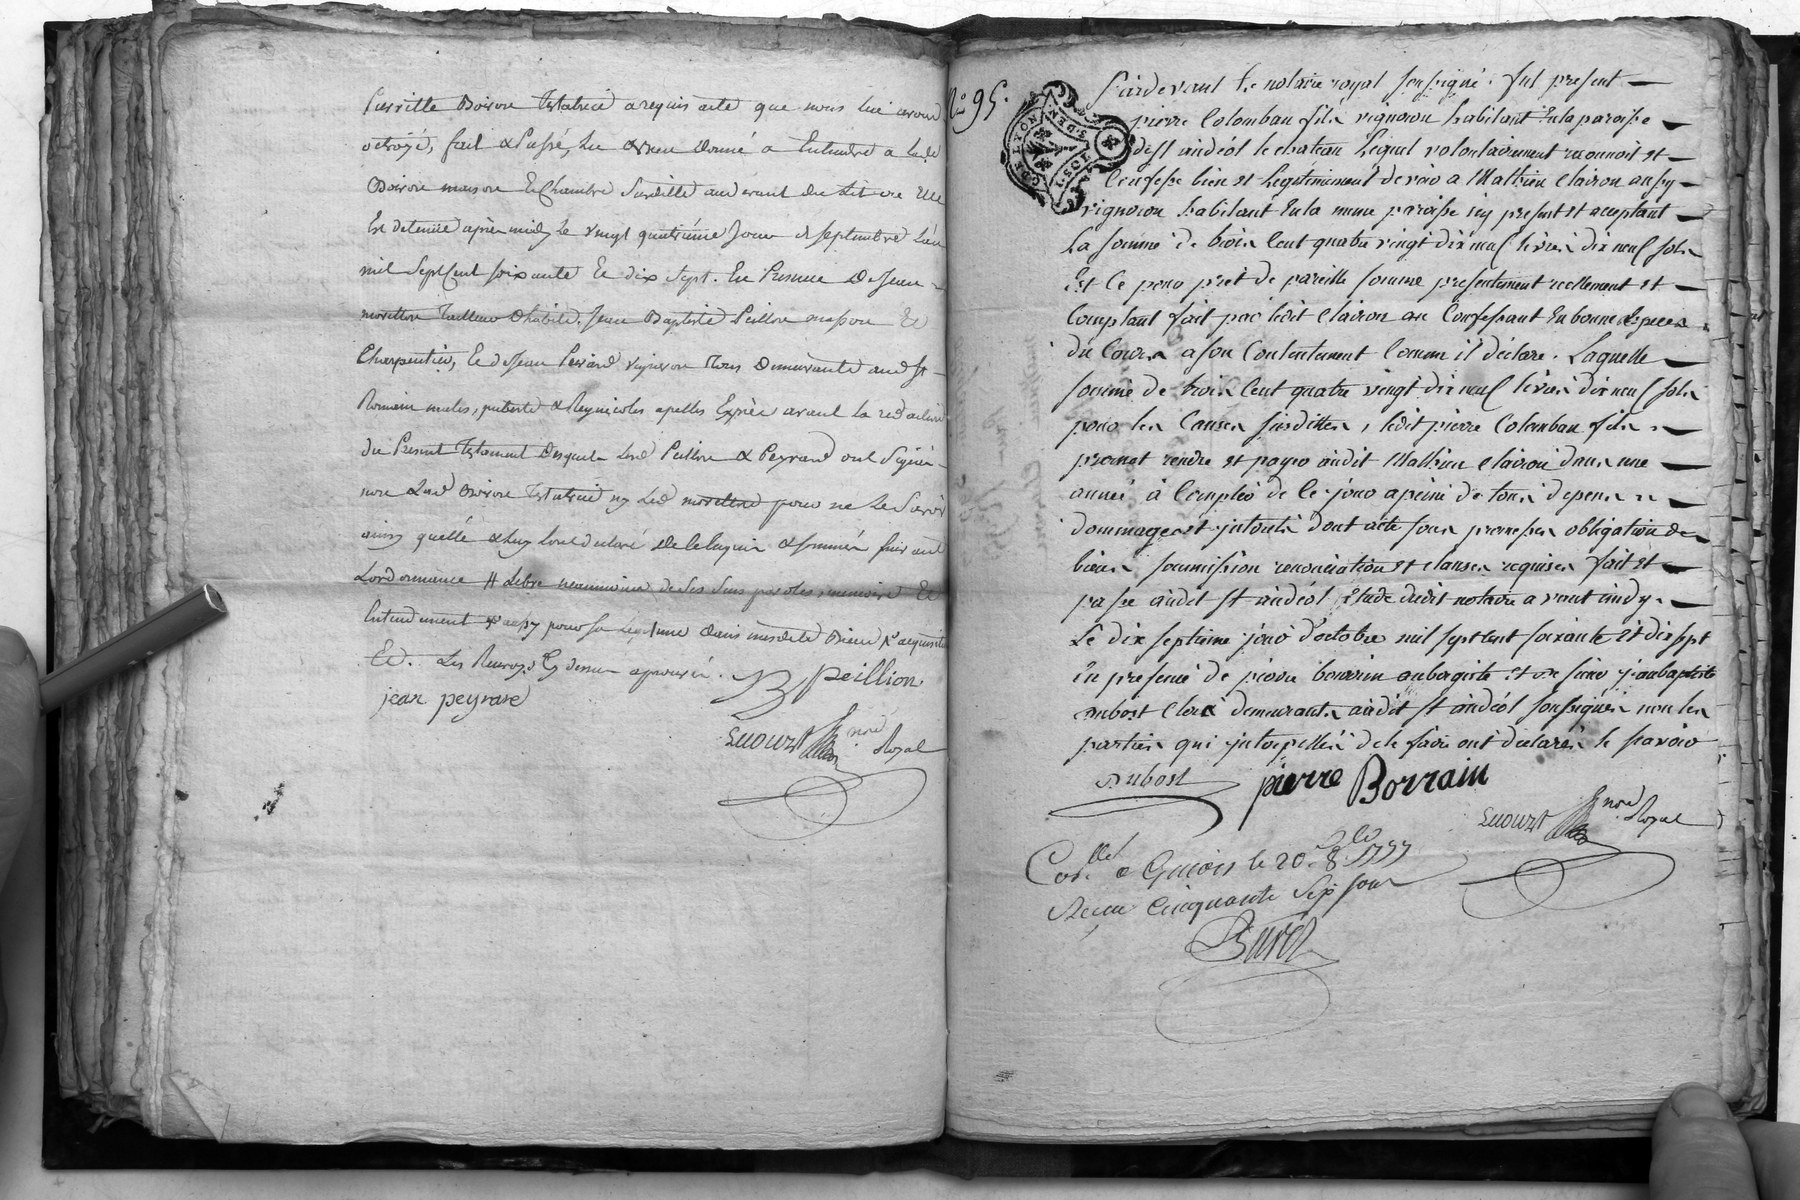 Pierrille Boiron Testatrice a requis acte que nous luy avons
octroyé, fait & Passé, Lu & relu donné a Entendre a lade
Boiron maison & Chambre Susditte au devant du Lit ou Elle
Est detenüe après midy Le vingt quatrieme Jour de septembre L'an
mil Sept Cent soixante Et dix Sept. En Presence De Jean
Tailleur d'habits, Jean Baptiste Peillon masson Et
Charpentier, Et de Jean Peirard vigneron Tous demeurants aud St
Romain males, puberes & Regnicoles apelles Exprès avant la redaction
du Present Testament desquels Lesd Peillon & Peyrard ont Signé
non Lad Boiron Testatrice ny Led pour ne Le Savoir
ainsy quelle & luy l'ont declaré de ce Enquis & sommés suivant
Lordonnance # Libre neanmoins de ses Sens paroles, memoire Et
Entendement
Les Renvoys Cy dessus aprouvés. B Peillion
jean peyrard
no.re Royal
N.o 95.
G. DE LYON
Pardevant Le notaire royal soussigné. fut present
pierre Colomban fils vigneron habitant En la paroisse
de St andéol le chateau Lequel volontairement reconnoit et
Confesse bien et Legitimement devoir a Mathieu Clairon aussy
vigneron habitant En la meme paroisse icy present et acceptant
La somme de trois Cent quatre vingt dix neuf livres dix neuf sols
Est Ce pour pret de pareille somme presentement reellement et
Comptant fait par ledit Clairon au Confessant En bonnes Especes
du Cours a son Contentement Comme il déclare. Laquelle
somme de trois Cent quatre vingt dix neuf livres dix neuf sols
pour les Causes susdittes, ledit pierre Colomban fils
promet rendre et payer audit Mathieu Clairon dans une
année à Compter de Ce jour a peine de tous depens
dommages et interets dont acte sous promesses obligation de
biens soumission renonciation et clauses requises fait et
passé audit St andéol Etude dudit notaire avant midy.
Le dix septieme jour d'octobre mil sept cent soixante et dix sept
En presence de pierre borrain aubergiste et de sieur jean baptiste
Dubost Clerc demeurants audit St andéol soussignés non les
parties qui interpellés de le faire ont déclarés le savoir
Dubost pierre Borrain
no.re Royal
Con.llé a Givors le 20 8.bre 1777
Recu Cinquante Sept sous
Buret